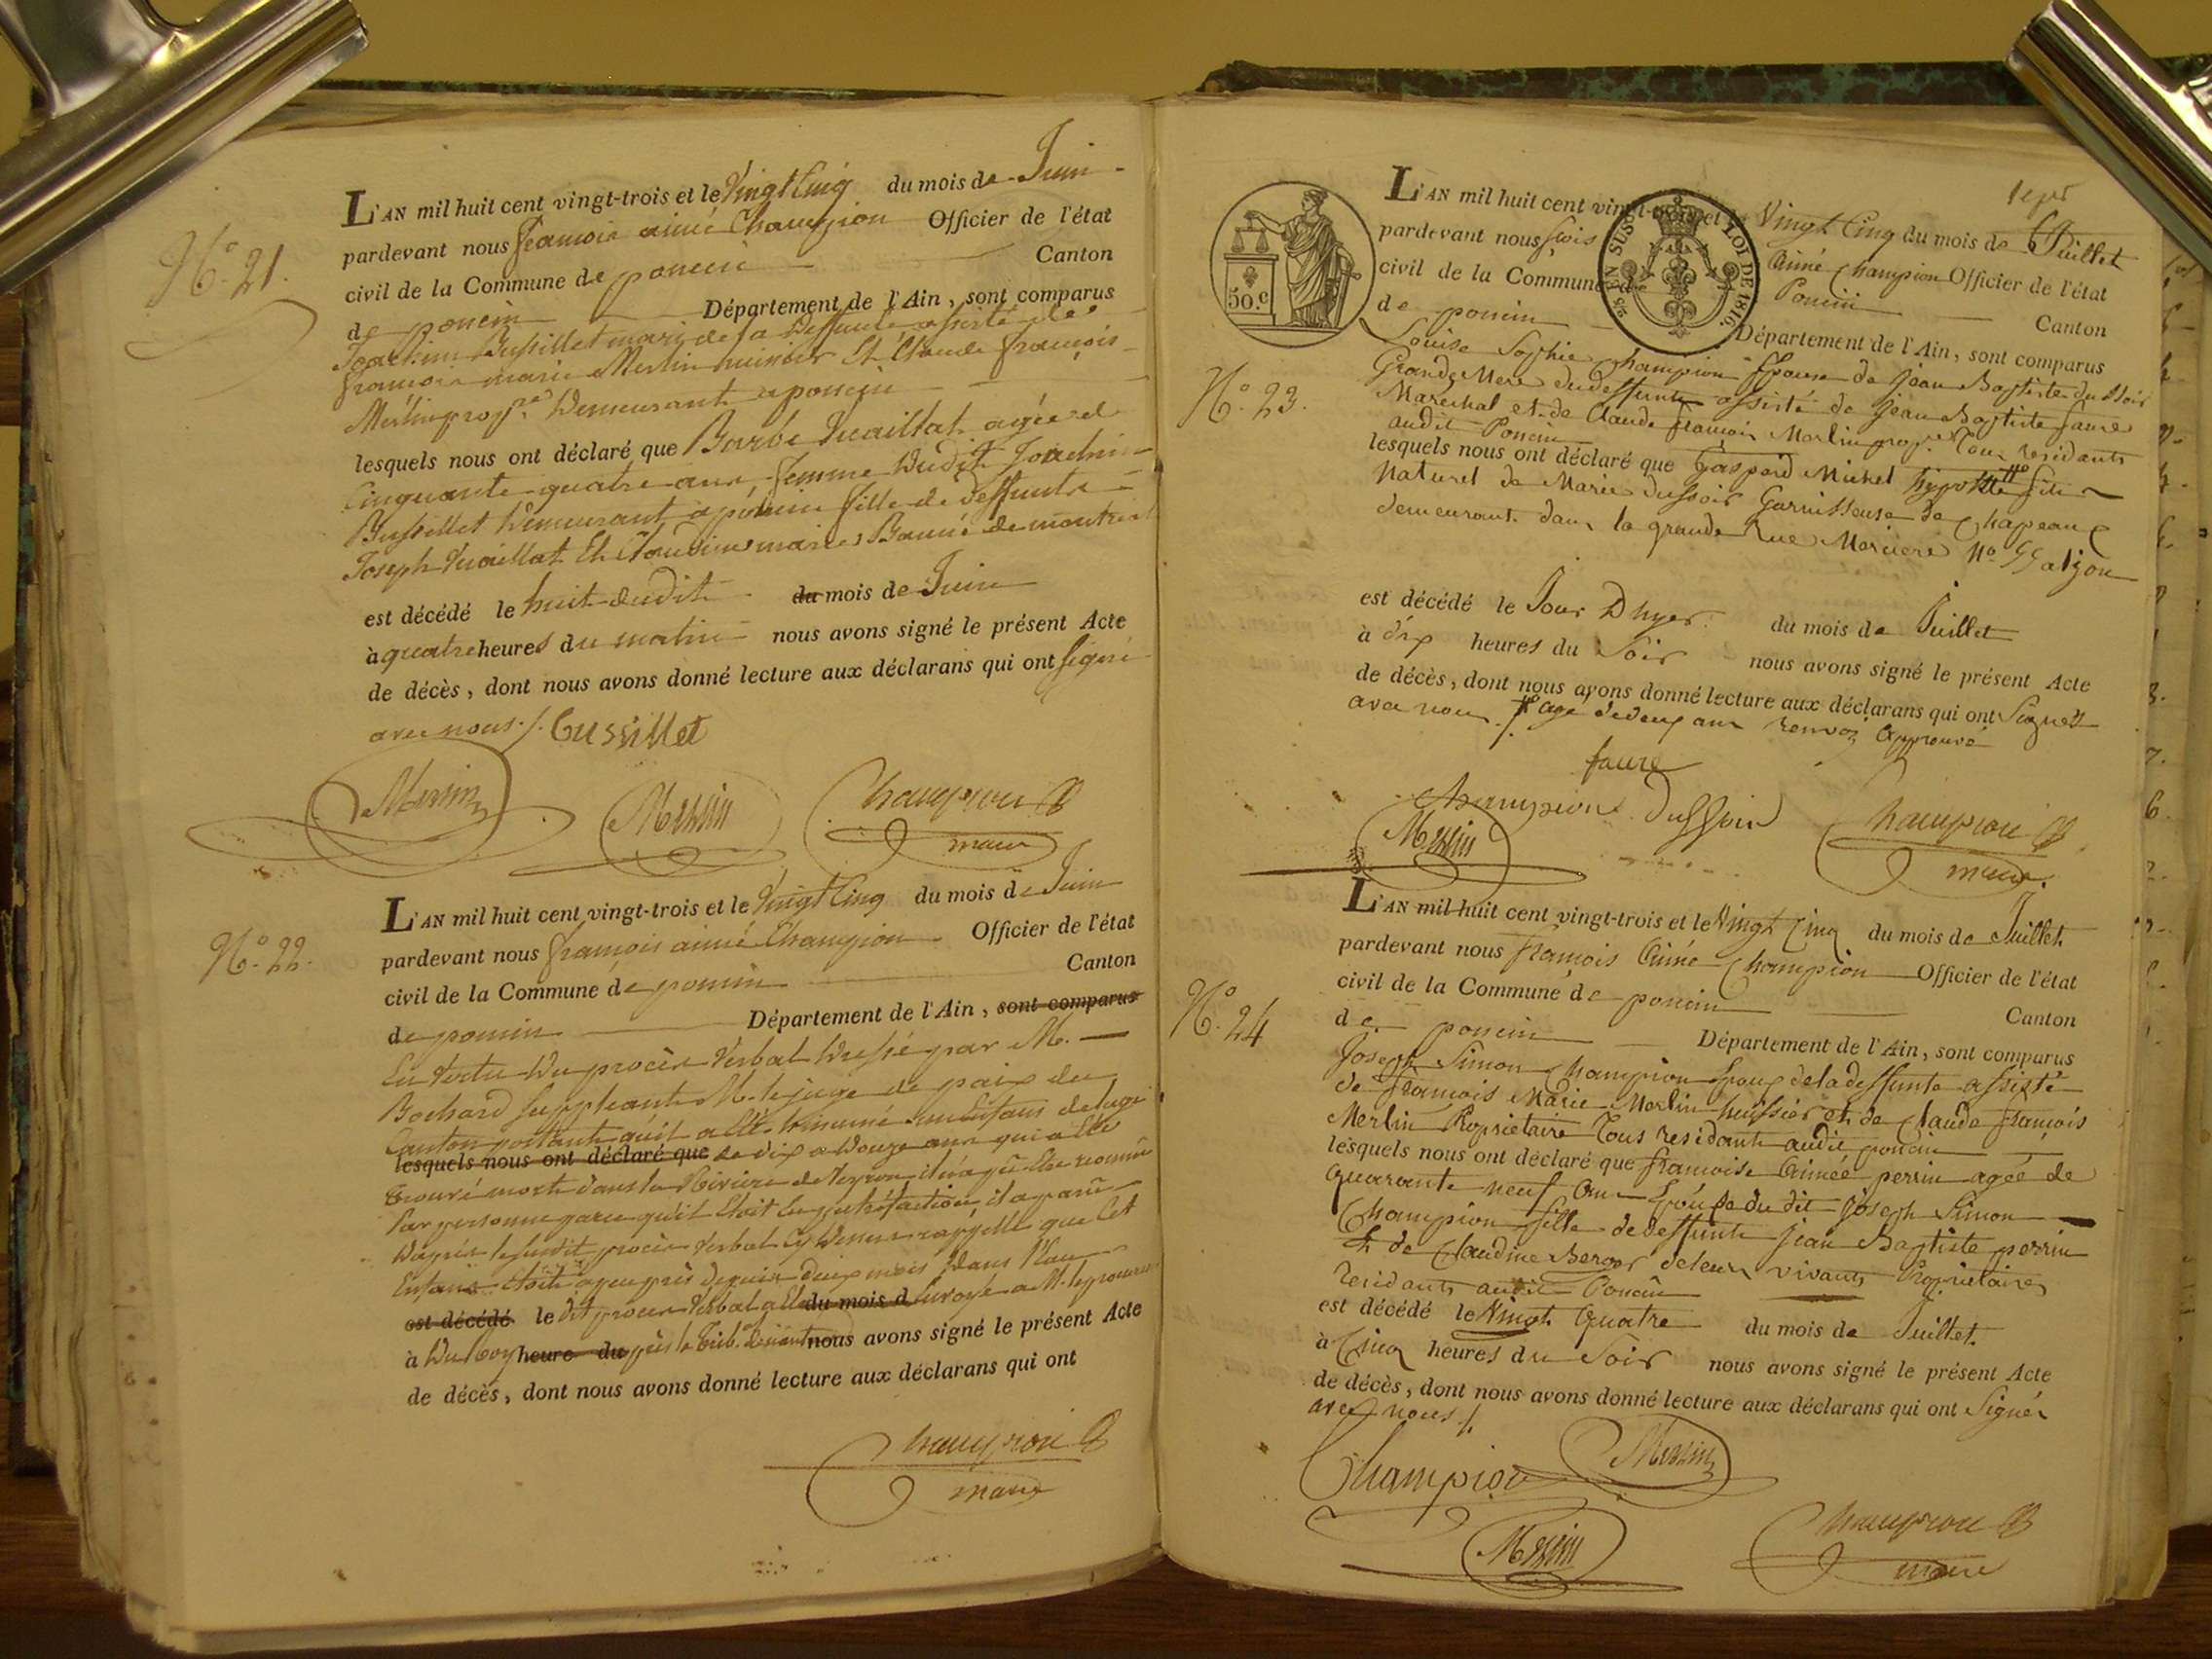 N.º 21.
L'AN mil huit cent vingt-trois et le Vingt Cinq du mois de Juin
pardevant nous françois aimé Champion Officier de l'état
civil de la Commune de poncin Canton
de poncin Département de l'Ain, sont comparus
Joachim Bussillet mari de la deffunte assisté de
françois marie Merlin huissier Et Claude françois
Merlin prop.re Demeurant a poncin
lesquels nous ont déclaré que Barbe Vuaillat agée de
Cinquante quatre ans, femme dudit Joachim
Bussillet Demeurant à poncin fille de deffunts
Joseph Vuaillat Et Claudine marie de
est décédé le huit dudit du mois de Juin
à quatre heures du matin nous avons signé le présent Acte
de décès, dont nous avons donné lecture aux déclarans qui ont signé
avec nous ./. bussillet
Merlin Merlin Champion
maire
N.º 22.
L'AN mil huit cent vingt-trois et le Vingt Cinq du mois de Juin
pardevant nous françois aimé Champion Officier de l'état
civil de la Commune de poncin Canton
de poncin Département de l'Ain, sont comparus
En Vertu du procès Verbal dressé par M.
Bochard suppleant M. le juge de paix du
Canton portant qu'il a été un Enfant de l'age
lesquels nous ont déclaré que de dix a douze ans qui a Eté
trouvé mort dans la Rivière de il n'a pû Etre reconnu
Par personne parce qu'il Etoit En putréfaction, il a paru
d'après le susdit procès Verbal que Cet
Enfant étoit a peu près depuis deux mois dans l'eau
est décédé le dit procès Verbal a Eté du mois d Envoyé a M. le procureur
à du Roy heure du près le Trib. nous avons signé le présent Acte
de décès, dont nous avons donné lecture aux déclarans qui ont
Champion
maire
50.c
EN SUS LOI DE 1816.
N.º 23.
L'AN mil huit cent vingt-trois et le Vingt Cinq du mois de Juillet
pardevant nous fçois Aimé Champion Officier de l'état
civil de la Commune de Poncin Canton
de poncin Département de l'Ain, sont comparus
Louise Sophie Champion Epouse de jean Baptiste dussoir
Grande Mere du deffunt assisté de jean Baptiste faure
Marechal et de Claude françois Merlin propre. Tous residants
audit Poncin
lesquels nous ont déclaré que Gaspard Michel hypolitte # fils
Naturel de Marie dussoir Garnisseuse de Chapeaux
demeurant dans la grande Rue Merciere N.º 55 a lyon
est décédé le Jour D'hyer du mois de Juillet
à dix heures du Soir nous avons signé le présent Acte
de décès, dont nous avons donné lecture aux déclarans qui ont Signés
avec nous ./. # agé de deux ans renvoi Approuvé
faure
Champion Dussoir
Merlin Champion
maire
N.º 24
L'AN mil huit cent vingt-trois et le Vingt Cinq du mois de Juillet
pardevant nous françois Aimé Champion Officier de l'état
civil de la Commune de poncin Canton
de poncin Département de l'Ain, sont comparus
Joseph Simon Champion Epoux de la deffunte assisté
de françois Marie Merlin huissier et de Claude françois
Merlin Proprietaire Tous residants audit poncin
lesquels nous ont déclaré que françoise Aimée perrin agée de
quarante neuf ans Epouse du dit joseph Simon
Champion fille de deffunts jean Baptiste perrin
Et de Claudine Berger de leurs vivants Proprietaires
residants audit Poncin
est décédé le Vingt Quatre du mois de Juillet
à Cinq heures du Soir nous avons signé le présent Acte
de décès, dont nous avons donné lecture aux déclarans qui ont Signés
avec nous ./.
Champion Merlin
Merlin Champion
maire